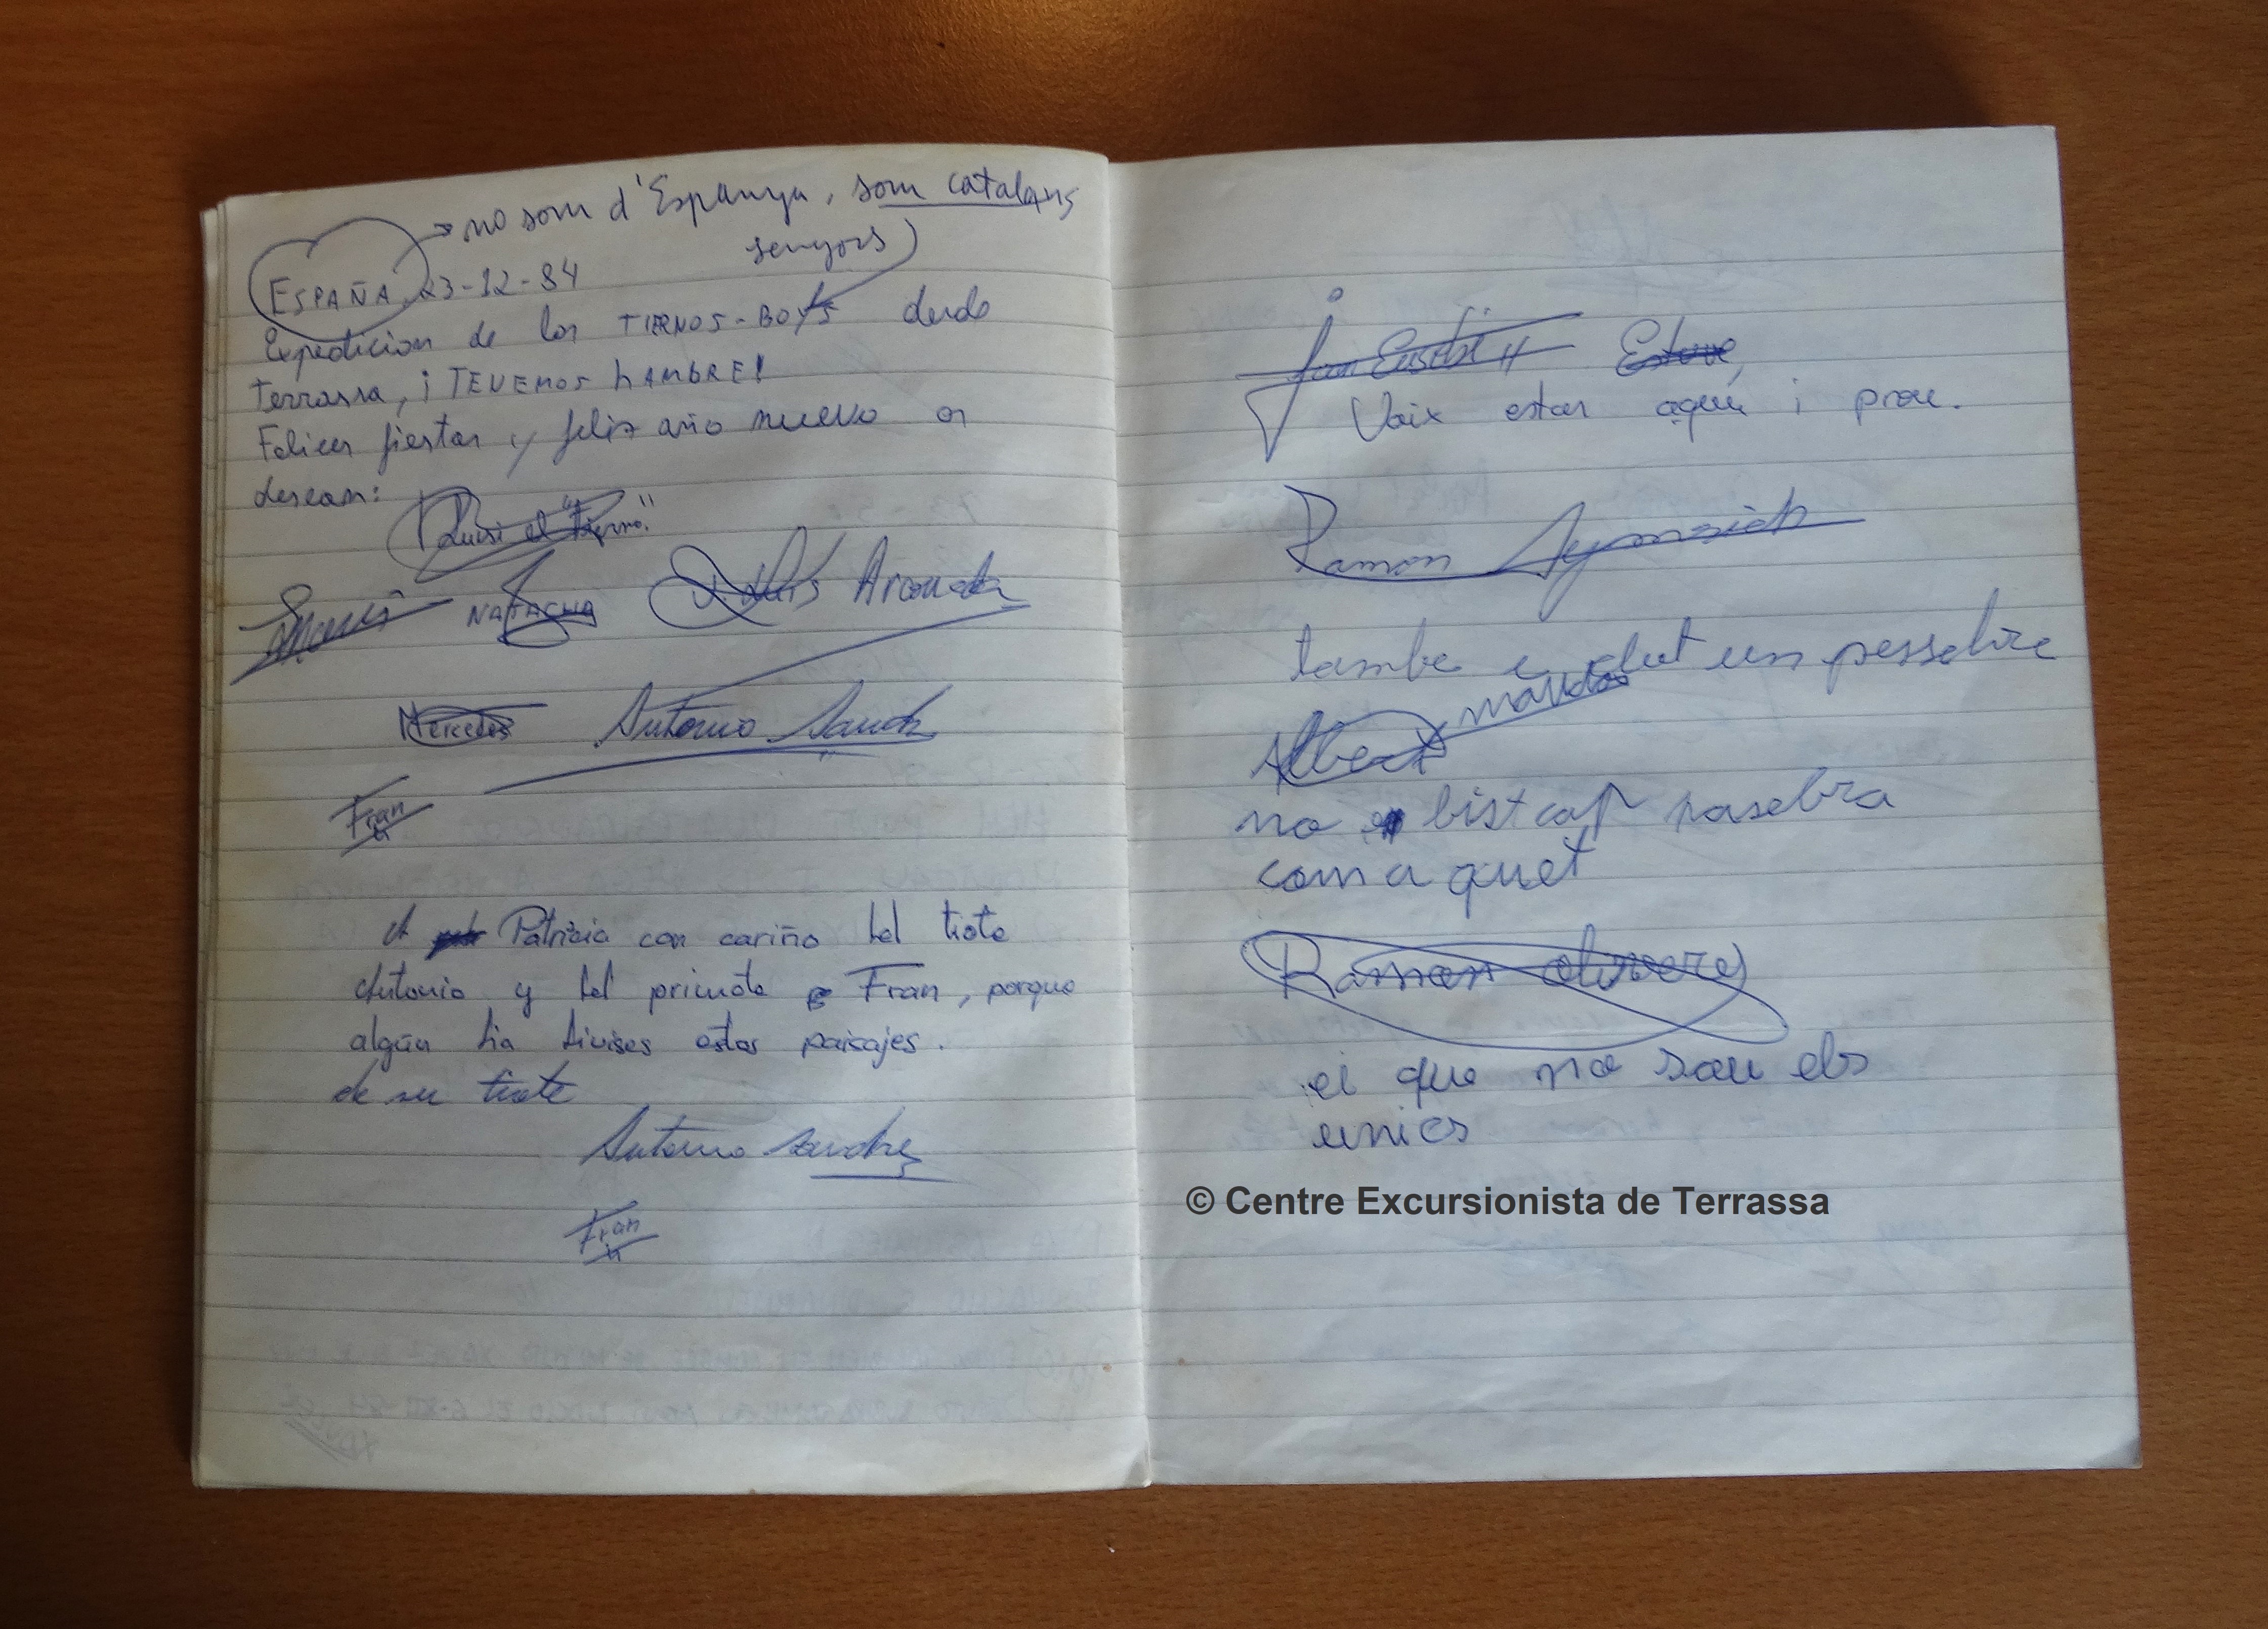 no som d'Espanya, som catalans
senyors
ESPAÑA 23-12-84
Expedicion de los TIERNOS-BOYS desde
Terrassa, ¡TENEMOS HAMBRE!
Felices fiestas y feliz año nuevo os
desean:
Luisi el "Tierno"
NATACHA J. Luis
Mercedes Antonio Sanch
Fran
A Patricia con cariño del tiote
Antonio y del primote Fran, porque
algún dia divises estos paisajes.
de su tiote
Antonio Sanchez
Fran
Joan Esteve
Vaix estar aquí i prou.
Ramon Aymerich
tambe e dut un pessebre
Albert
no bist cap pasebra
com a quet
Ramon oliveres
ei que no sou els
unics
© Centre Excursionista de Terrassa